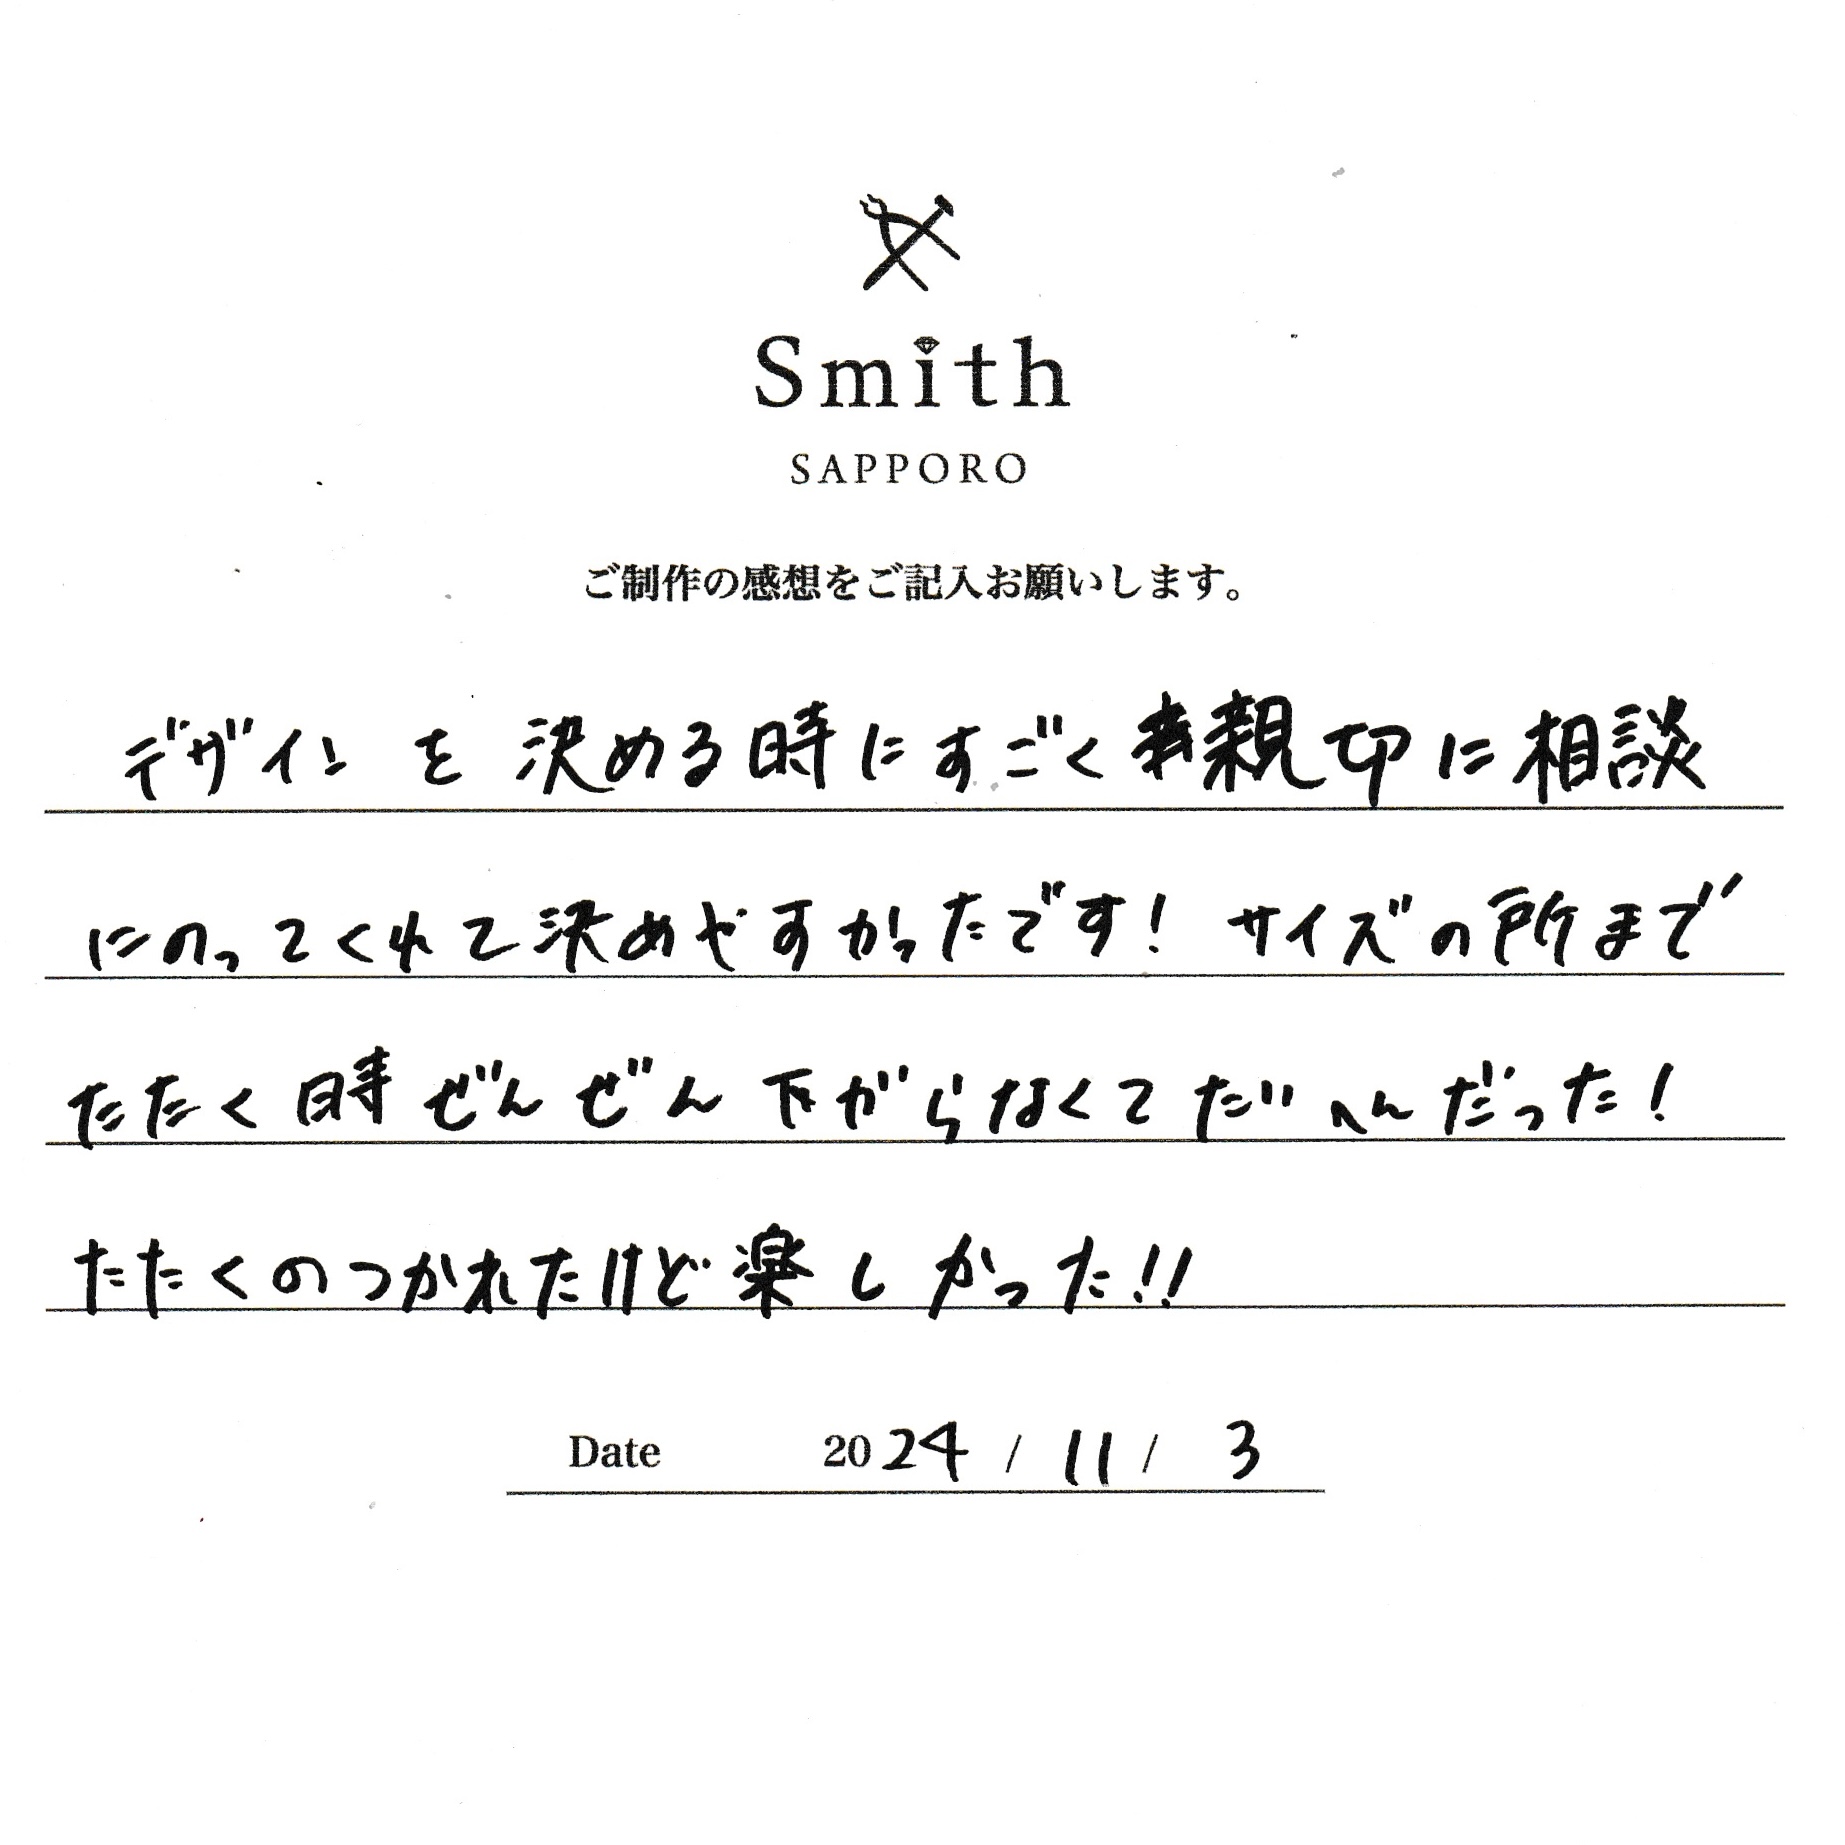 Smith
SAPPORO
ご制作の感想をご記入お願いします。
デザインを決める時にすごく親切に相談
にのってくれて決めやすかったです！サイズの所まで
たたく時ぜんぜん下がらなくてたいへんだった！
たたくのつかれたけど楽しかった!!
Date 2024 / 11 / 3